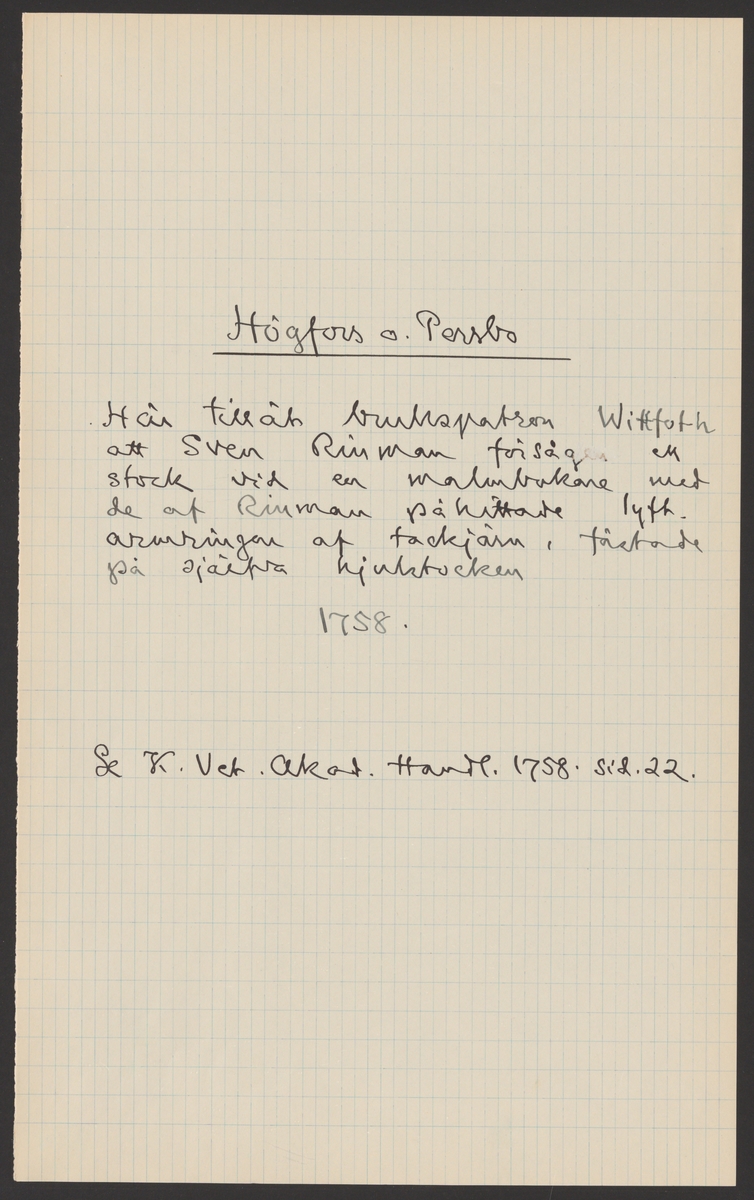 Högfors o. Persbo
Här tillät brukspatron Wittfoth
att Sven Rinman försåge en
stock vid en malmbokare med
de af Rinman påhittade lyft-
armringar af tackjärn, fästade
på själfva hjulstocken
1758.
Se K. Vet. Akad. Handl. 1758. sid. 22.